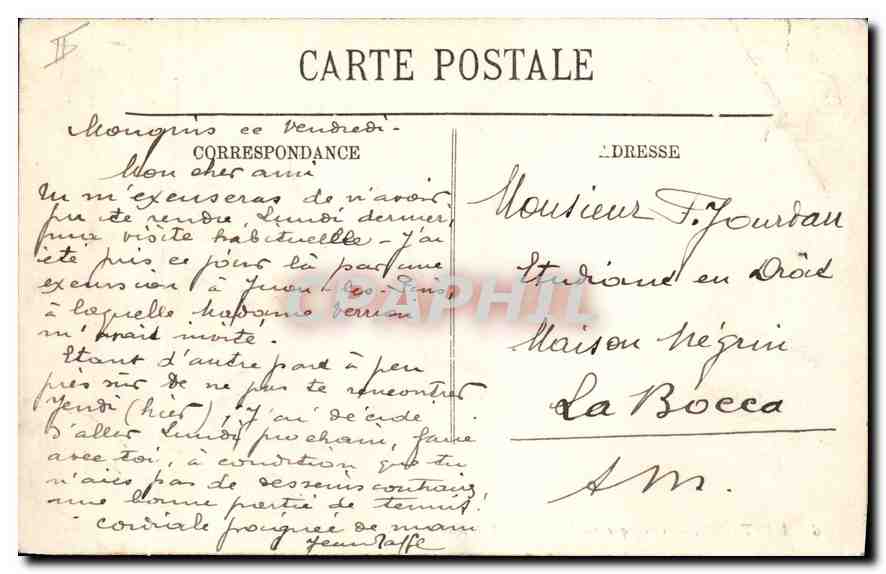 CARTE POSTALE
Mougins ce Vendredi -
CORRESPONDANCE
Mon cher ami
Tu m'excuseras de n'avoir
pu te rendre Lundi dernier,
visite habituelle - J'ai
été pris ce jour là par une
excursion à Juan-les-Pins,
à laquelle Madame
m'avait invité.
Etant d'autre part à peu
près sûr de ne pas te rencontrer
Jeudi (hier), J'ai décidé
d'aller Lundi prochain, faire
avec toi, à condition que tu
n'aies pas de desseins contraires,
une bonne partie de tennis.
Cordiale poignée de main
Jean
ADRESSE
Monsieur F. Jourdan
Etudiant en Droit
Maison Négrin
La Bocca
A M.
CPAPHIL